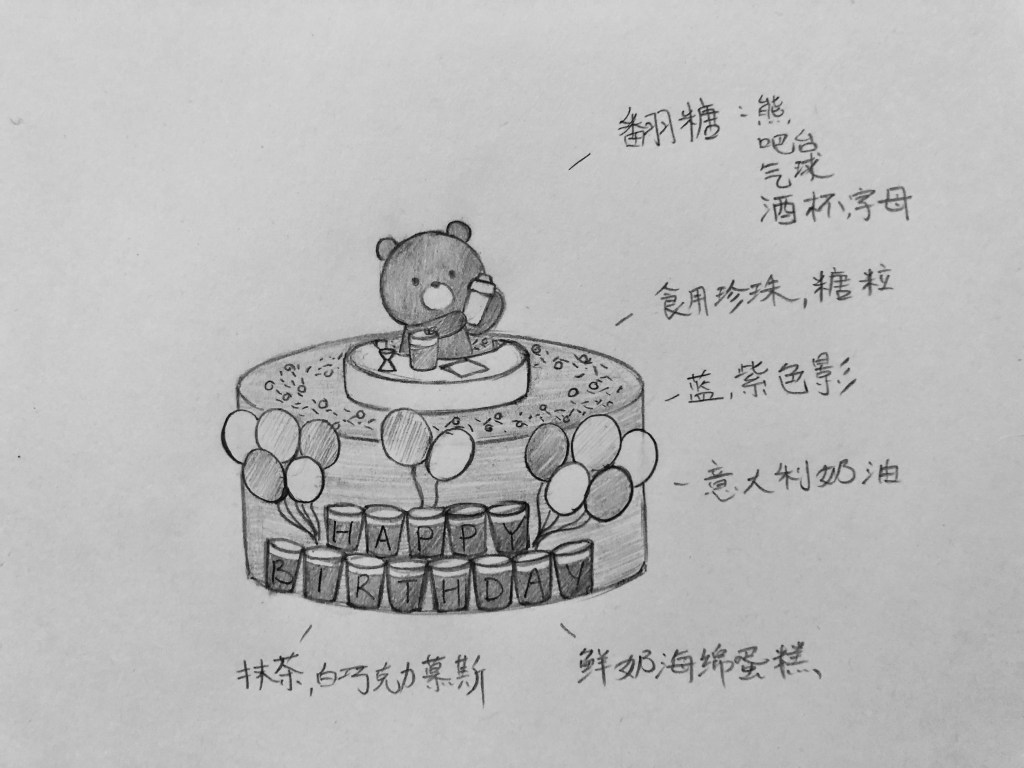 翻糖：熊,
吧台
气球
酒杯、字母
食用珍珠,糖粒
蓝,紫色影
意大利奶油
HAPPY
BIRTHDAY
抹茶,白巧克力慕斯
鲜奶海绵蛋糕、